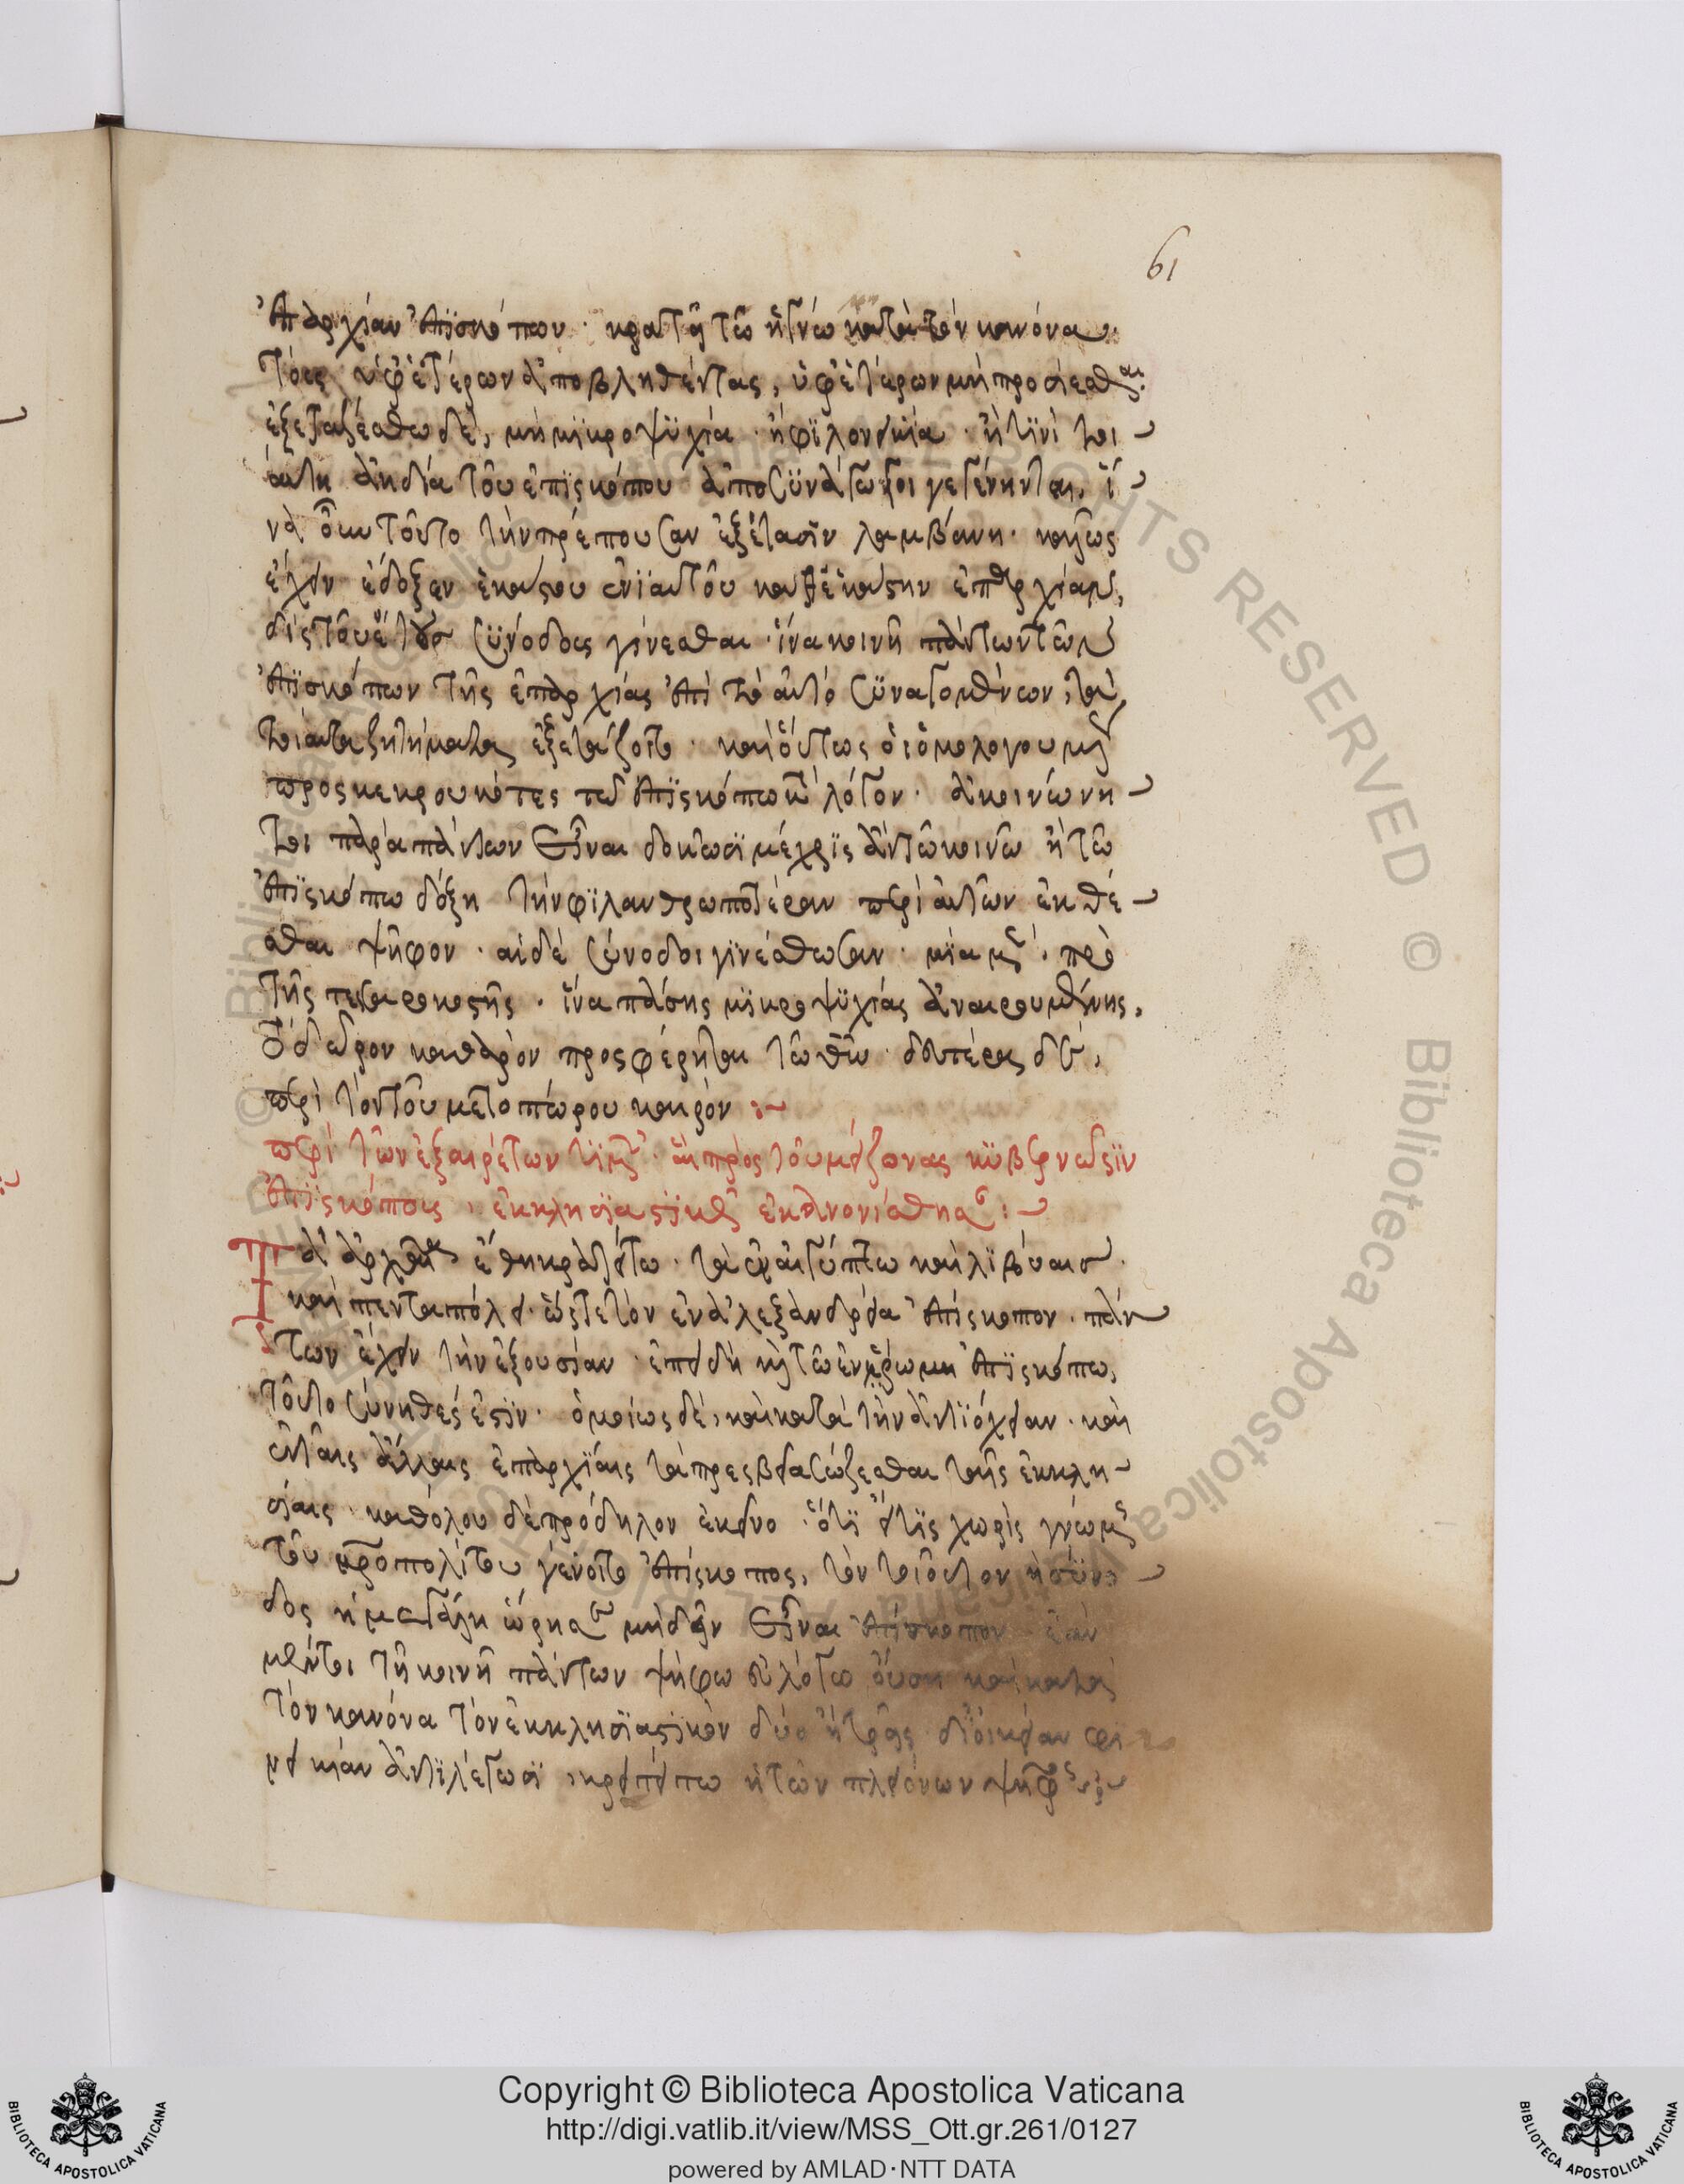 61
ἐπαρχίαν ἐπϊσκόπων · κρατῇ τῶ ἡ γνώ κατὰ τὸν κανόνα
τοὺς ὑφ' ἑτέρων ἀποβληθέντας, ὑφ' ἑτέρων μὴ προσίεσθαι
ἐξεταζέσθω δὲ, μὴ μϊκροψϋχία · ἢ φϊλονεικία · ἤ τϊνϊ τοι
αύτη ἀηδία τοῦ ἐπϊσκόπου ἀποσϋνάγωγοι γεγένηνται, ἵ
να οὖν τοῦτο τὴν πρέπουσαν ἐξέτασϊν λαμβάνη · καλῶς
ἔχειν ἔδοξεν ἑκάστου ἐνϊαυτοῦ καθ' ἑκάστην ἐπαρχίαν,
δὶς τοῦ ἔτους σϋνόδους γίνεσθαι · ἵνα κοινῆ πάντων τῶν
ἐπϊσκόπων τῆς ἐπαρχίας ἐπὶ τὸ αὐτὸ σϋναγομένων, τὰ
τοιαῦτα ζητήματα ἐξετάζοιτο · καὶ οὕτως οἱ ὁμολογουμένως
προσκεκρουκότες τῶ ἐπϊσκόπω κατὰ λόγον · ἀκοινώνη
τοι παρὰ πάντων εἶναι δοκῶσϊ μέχρϊς ἂν τῶ κοινῶ ἢ τῶ
ἐπϊσκόπω δόξη τὴν φϊλανθρωποτέραν περὶ αὐτῶν ἐκθέ
σθαι ψῆφον · αἱ δὲ σύνοδοι γϊνέσθωσαν · μϊα μὲν · πρὸ
τῆς τεσσαρακοστῆς · ἵνα πάσης μϊκροψϋχίας ἀναιρουμένης,
τὸ δῶρον καθαρὸν προσφέρηται τῶ θεῶ · δευτέρα δὲ,
περὶ τὸν τοῦ μετοπώρου καιρὸν :~
περὶ τῶν ἐξαιρέτων τϊμῶν · αἳ πρὸς τοὺς μείζονας κϋβερνῶσϊν
ἐπϊσκόπους · ἐκκλησϊαστϊκαὶ ἐκανονίσθησαν :~
Τὰ ἀρχαῖα ἔθη κρατείτω · τὰ ἐν αἰγύπτω καὶ λϊβύαις
καὶ πενταπόλει · ὥστε τὸν ἐν ἀλεξανδρεία ἐπίσκοπον · πάν
των ἔχειν τὴν ἐξουσίαν · ἐπειδὴ καὶ τῶ ἐν ῥώμη ἐπϊσκόπω,
τοῦτο σύνηθές ἐστϊν · ὁμοίως δὲ, καὶ κατὰ τὴν ἀντϊόχειαν · καὶ
ἐν ταῖς ἄλλαις ἐπαρχϊαις τὰ πρεσβεῖα σώζεσθαι ταῖς ἐκκλη
σίαις · καθόλου δὲ πρόδηλον ἐκεῖνο · ὅτϊ εἴ τϊς χωρὶς γνώμης
τοῦ μητροπολίτου γένοιτο ἐπίσκοπος, τὸν τοιοῦτον ἡ σύνο
δος ἡ μεγάλη ὥρησε μὴ δεῖν εἶναι ἐπίσκοπον · ἐὰν
μέντοι τῆ κοινῆ πάντων ψήφω εὐλόγω οὔση καὶ κατὰ
τὸν κανόνα τὸν ἐκκλησϊαστϊκὸν δύο ἢ τρεῖς δι' οἰκείαν φι
νεικίαν ἀντϊλέγωσϊ · κρατείτω ἡ τῶν πλειόνων ψῆφος :~
Copyright © Biblioteca Apostolica Vaticana
http://digi.vatlib.it/view/MSS_Ott.gr.261/0127
powered by AMLAD·NTT DATA
BIBLIOTECA APOSTOLICA VATICANA
BIBLIOTECA APOSTOLICA VATICANA